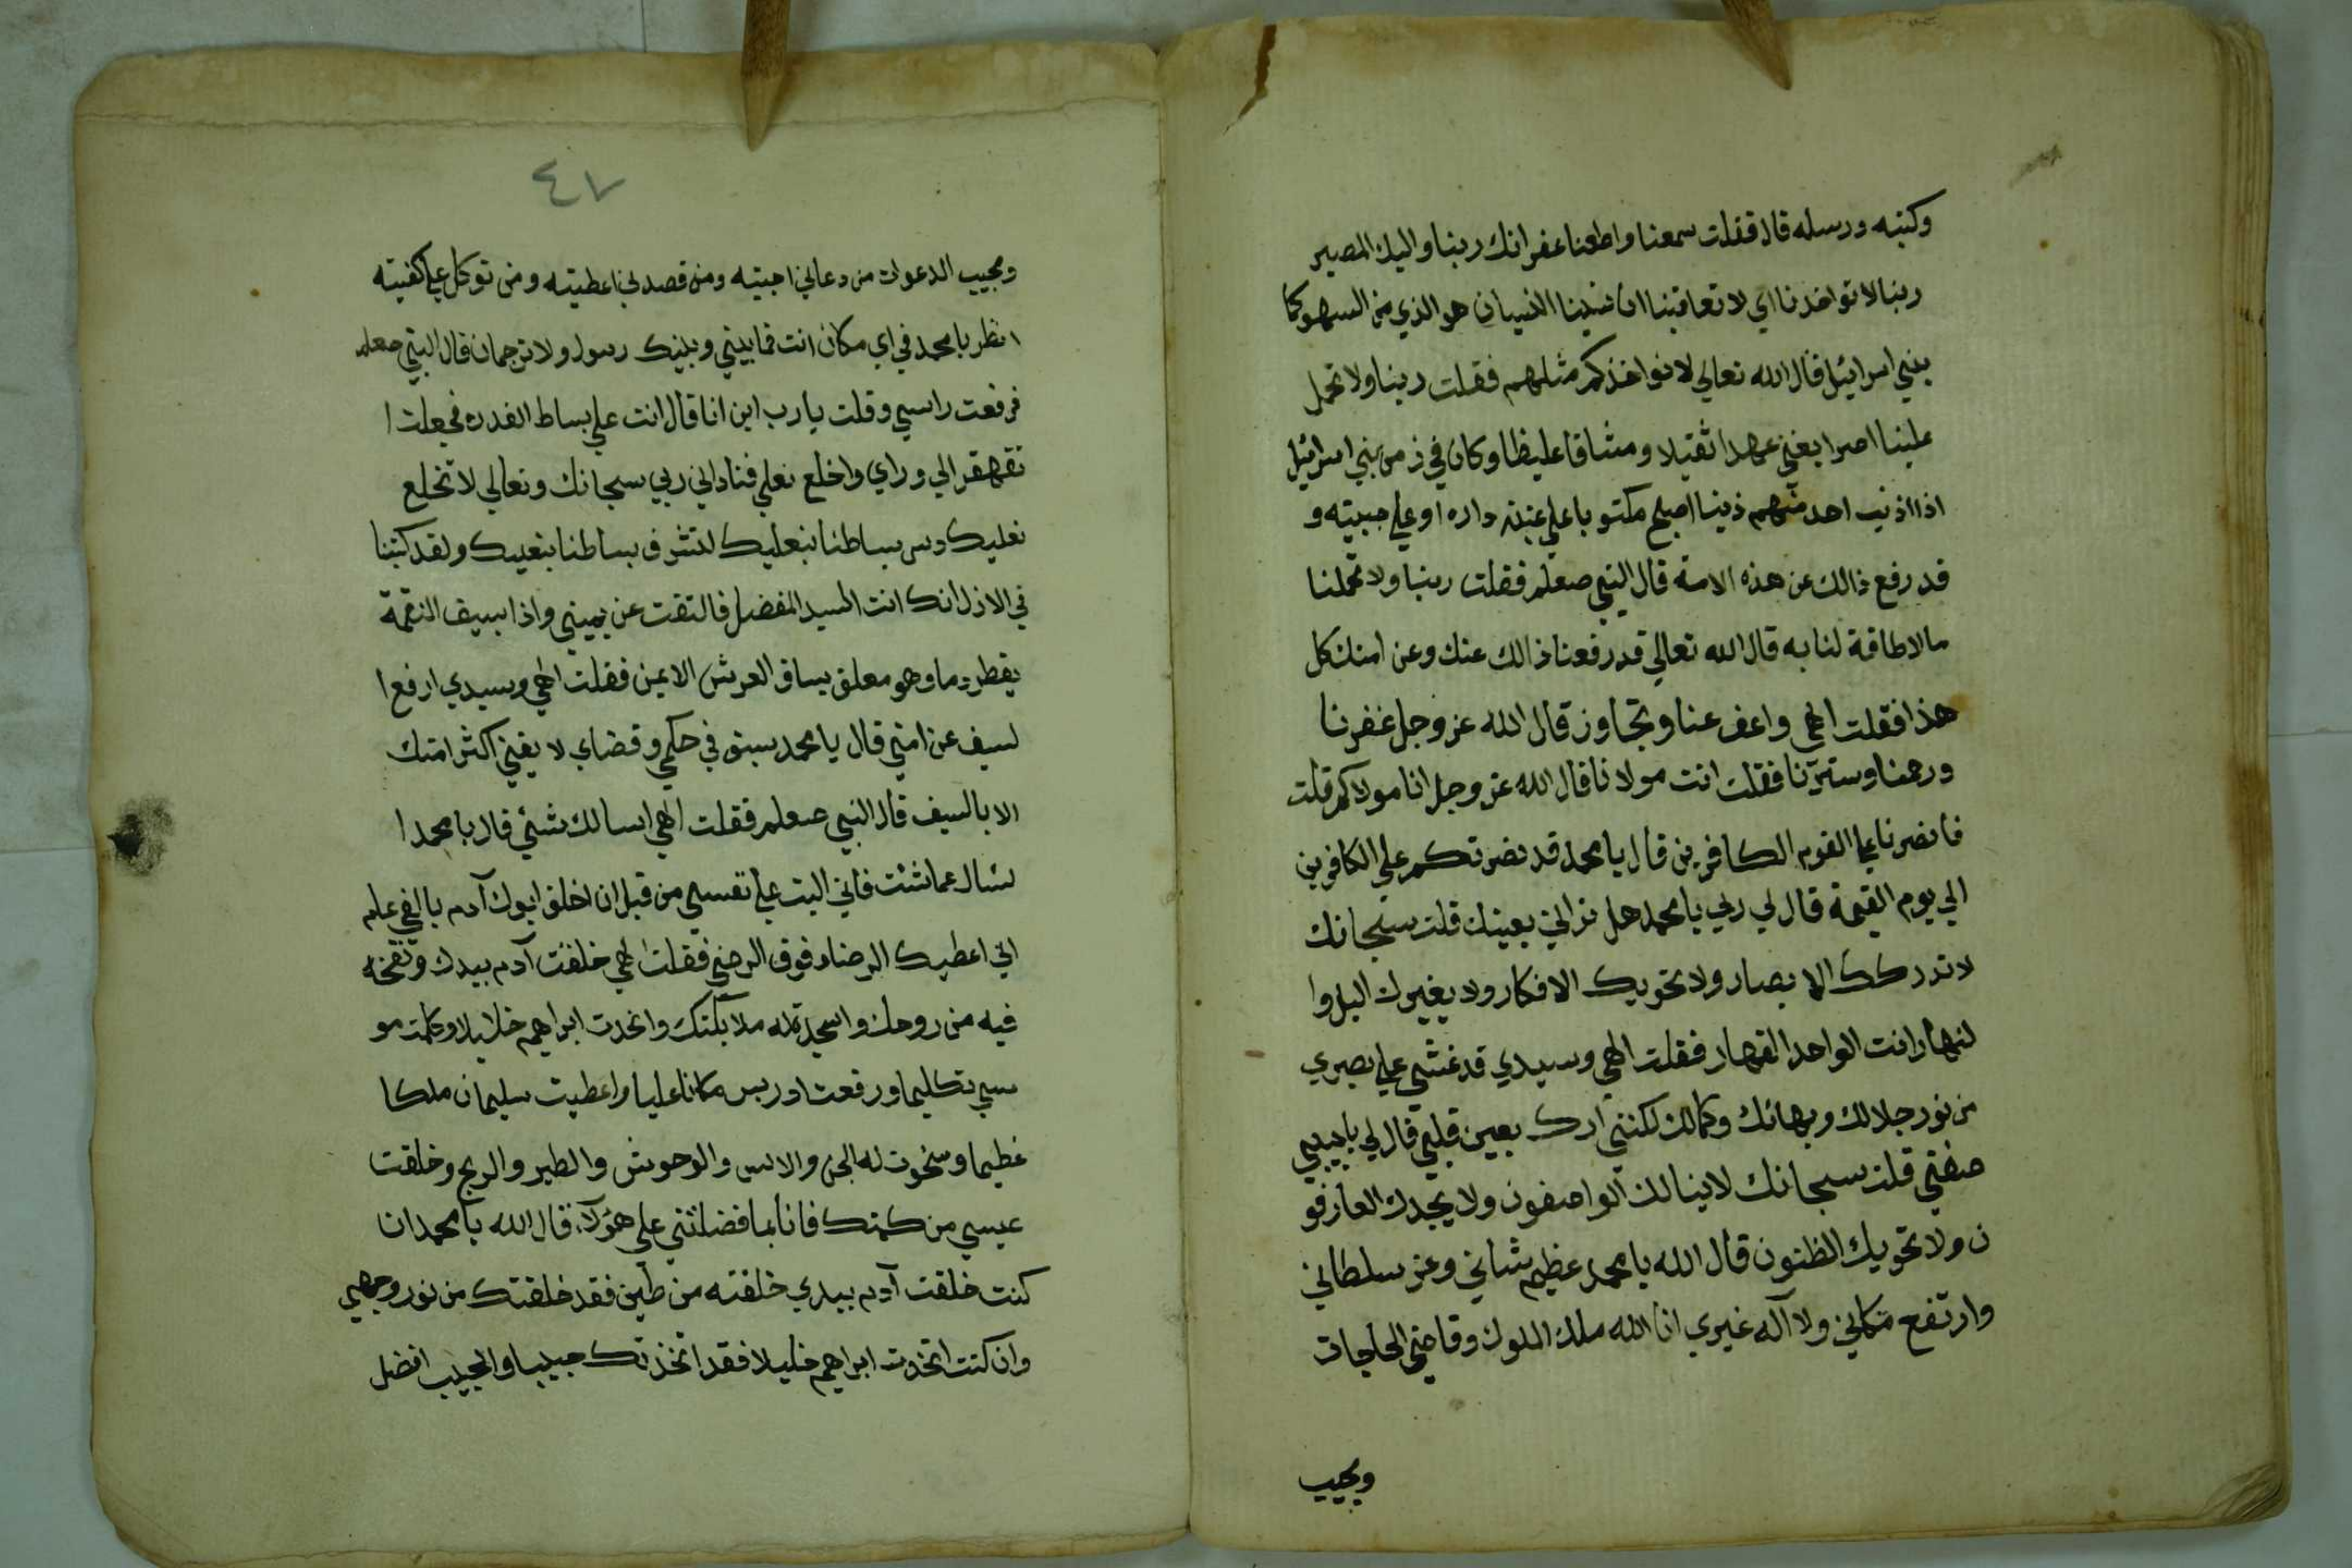 وكتبه ورسله قال فقلت سمعنا واطعنا غفرانك ربنا واليك المصير
ربنا لا تواخذنا اي لا تعاقبنا ان نسينا النسيان هو الذي من السهو كما
بني اسرائيل قال الله تعالي لا نواخذكم مثلهم فقلت ربنا ولا تحمل
علينا اصرا يغني عهدا ثقيلا ومشاقا عليظا وكان في زمن بني اسرائيل
اذا اذنب احد منهم ذنبا اصبح مكتوبا علي عتبة داره او علي جبيته و
قد رفع ذالك عن هذه الامة قال النبي صعلم فقلت ربنا ولا تحملنا
مالا طاقة لنا به قال الله تعالي قد رفعنا ذالك عنك وعن امتك كل
هذا فقلت الهي واعف عنا وتجاوز قال الله عز وجل غفرنا
ورحمنا وسترنا فقلت انت مولانا قال الله عز وجل انا مولاكم قلت
فانصرنا علي القوم الكافرين قال يا محمد قد نصرتكم علي الكافرين
الي يوم القيمة قال لي ربي يا محمد هل تراني بعينك قلت سبحانك
لا تدركك الابصار ولا تحويك الافكار ولا يغيرك اليل وا
لنهار انت الواحد القهار فقلت الهي وسيدي قد غشي علي بصري
من نور جلالك وبهائك وكمالك لكنني ارك بعين قلبي قال لي يا حبيبي
صفني قلت سبحانك لا ينالك الواصفون ولا يحدك العارفو
ن ولا تحويك الظنون قال الله يا محمد عظيم شاني وعز سلطاني
وارتفع مكاني ولا آله غيري انا الله ملك الملوك وقاضي الحاجات
ومجيب
٤٧
ومجيب الدعوات من دعاني اجبته ومن قصدني اعطيته ومن توكل علي كفيته
انظر يا محمد في اي مكان انت فما بيني وبينك رسول ولا ترجمان قال النبي صعلم
فرفعت راسي وقلت يا رب اين انا قال انت علي بساط القدره فجعلت ا
تقهقر الي وراي واخلع نعلي فناداني ربي سبحانك وتعالي لا تخلع
نعليك ودس بساطنا بنعليك لتشرف بساطنا بنعليك ولقد كتبنا
في الازل انك انت السيد المفضل فالتفت عن يميني واذا بسيف النقمة
يقطر دما وهو معلق بساق العرش الايمن فقلت الهي وسيدي ارفع ا
لسيف عن امتي قال يا محمد سبق في حكمي وقضاي لا يفني اكثر امتك
الا بالسيف قال النبي صعلم فقلت الهي اسالك بشئ قال يا محمد ا
سال عما شئت فاني اليت علي نفسي من قبل ان اخلق ابوك آدم بالفي عام
اني اعطيك الرضاء فوق الرضي فقلت الهي خلقت آدم بيدك ونفخت
فيه من روحك واسجدت له ملائكتك واتخدت ابراهيم خليلا وكلمت مو
سي تكليما ورفعت ادريس مكانا عليا واعطيت سليمان ملكا
عظيما وسخرت له الجن والانس والوحوش والطير والريح وخلقت
عيسي من كلمتك فانا بما فضلتني علي هؤلآء قال الله يا محمد ان
كنت خلقت آدم بيدي خلقته من طين فقد خلقتك من نور وجهي
وان كنت اتخدت ابراهيم خليلا فقد اتخذتك حبيبا والحبيب افضل